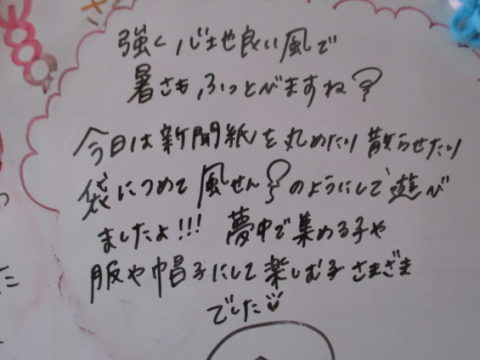 強く心地良い風で
暑さも、ふっとびますね
今日は新聞紙を丸めたり散らせたり
袋につめて風せんのようにして遊び
ましたよ!!! 夢中で集める子や
服や帽子にして楽しむ子さまざま
でした
た